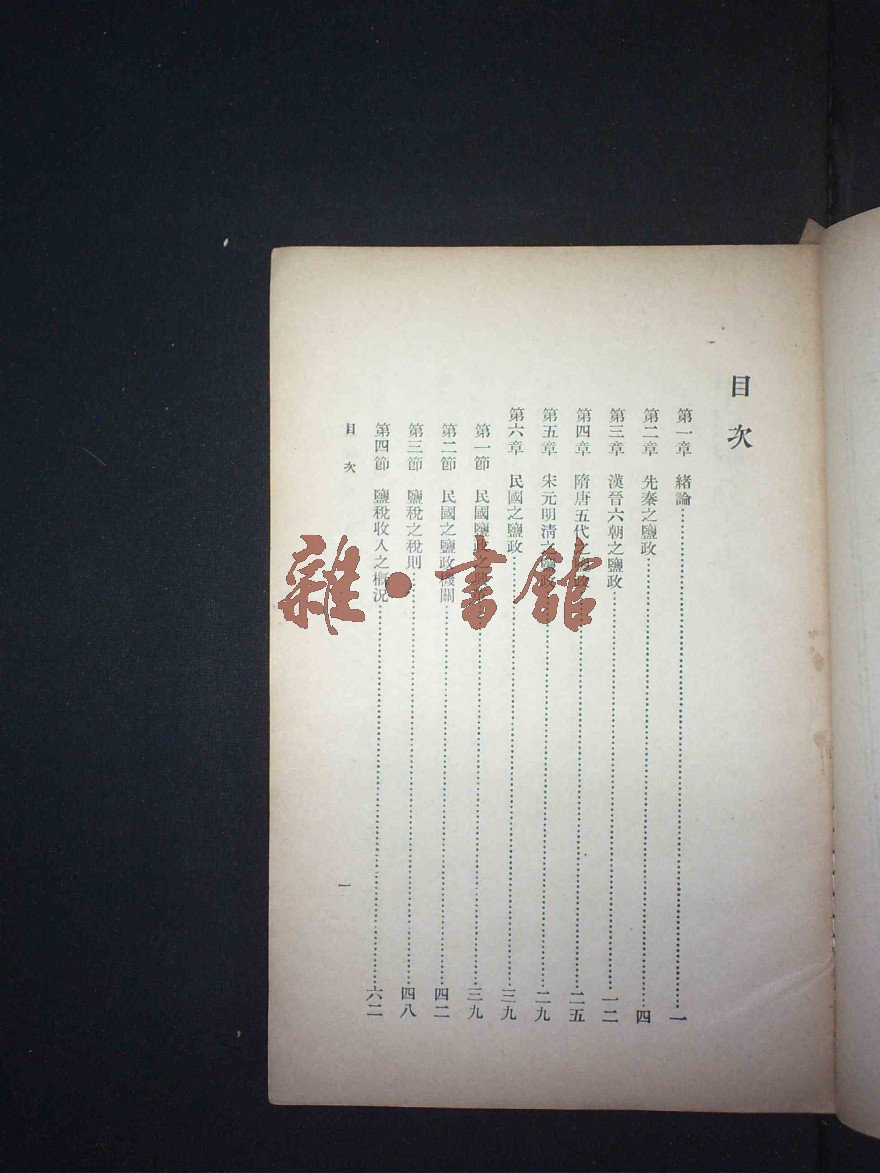 目次
第一章 緒論…………一
第二章 先秦之鹽政…………四
第三章 漢晉六朝之鹽政…………一二
第四章 隋唐五代之鹽政…………二五
第五章 宋元明清之鹽政…………二九
第六章 民國之鹽政…………三九
第一節 民國鹽政之…………三九
第二節 民國之鹽政機關…………四二
第三節 鹽稅之稅則…………四八
第四節 鹽稅收入之概況…………六二
目次
一
雜·書館